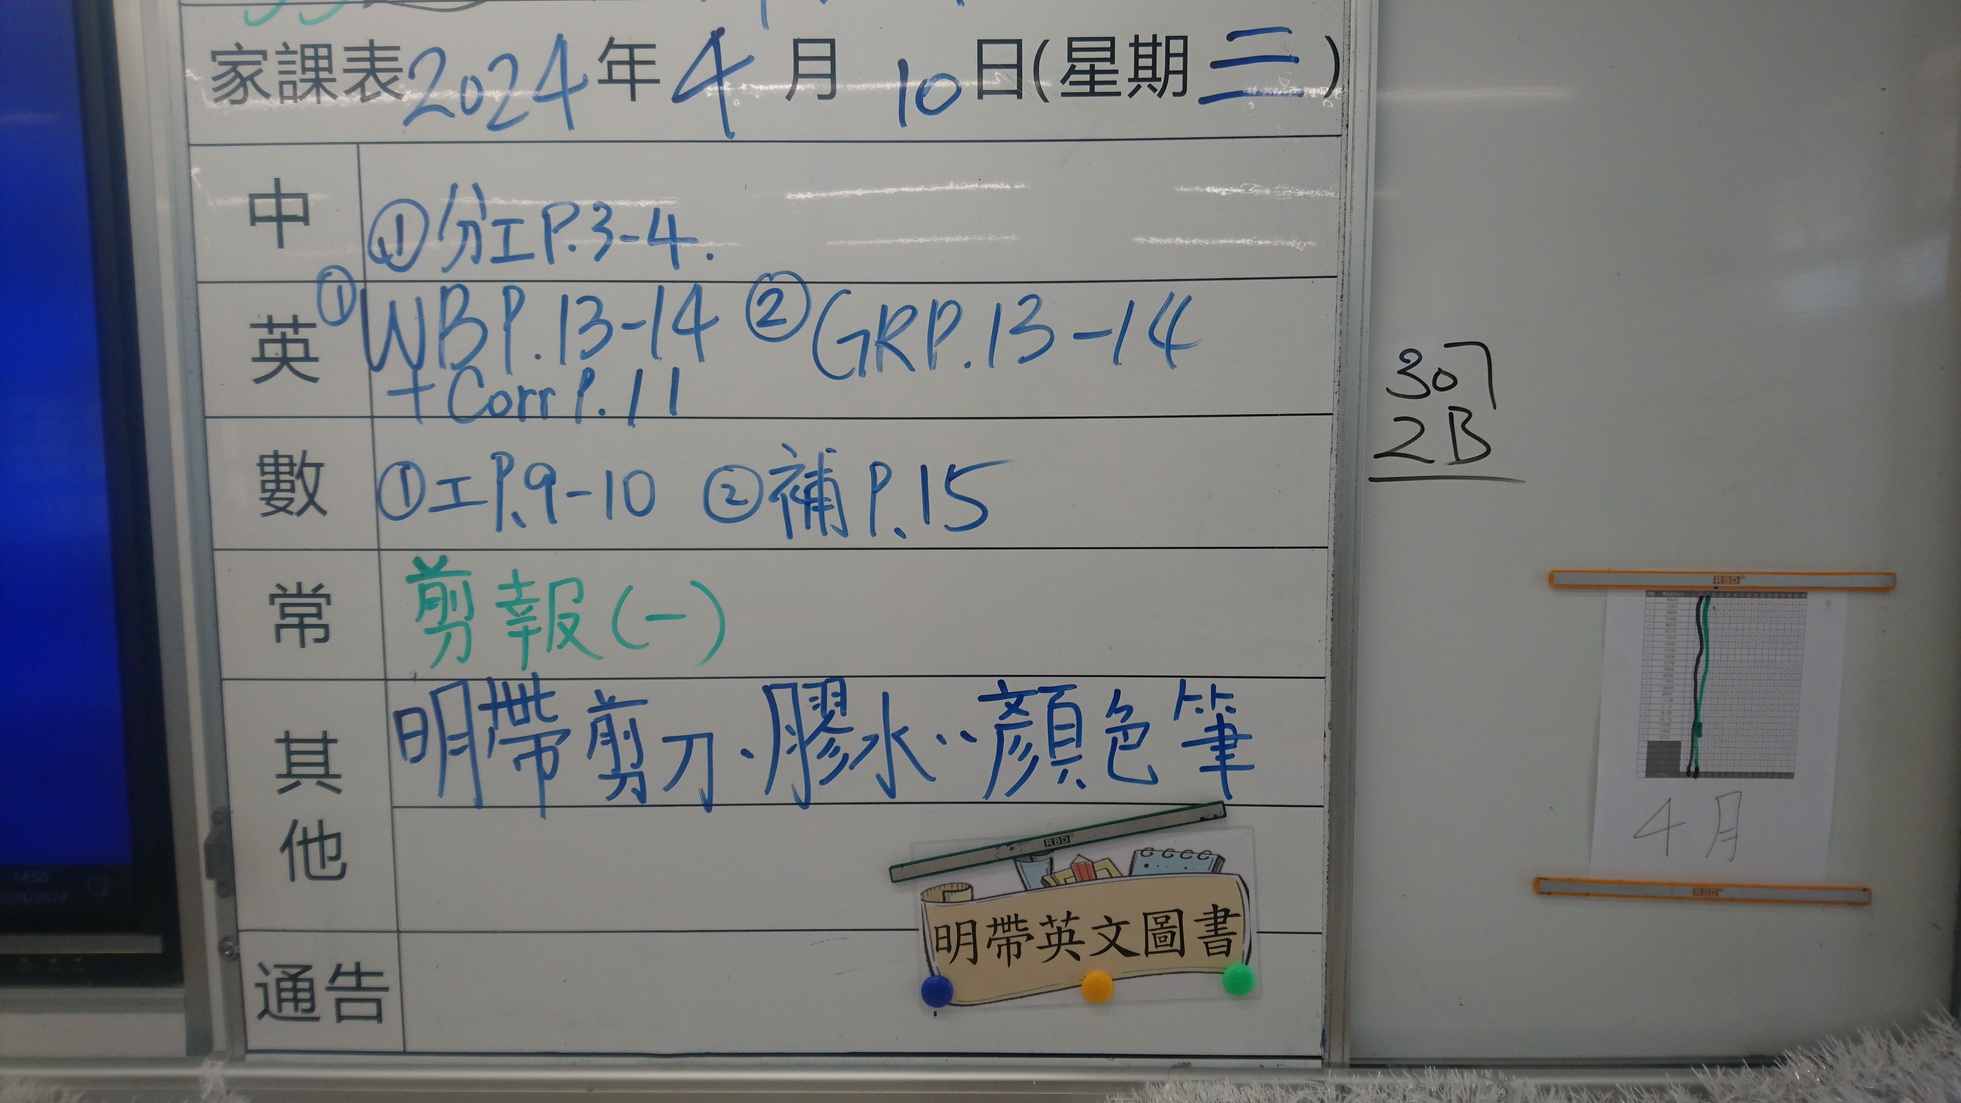 家課表2024年4月10日(星期三)
中 ①分工P.3-4.
英 ①WBP.13-14 ②GRP.13-14
+Corr P.11
數 ①工P.9-10 ②補P.15
常 剪報(一)
其他 明帶剪刀、膠水、顏色筆
明帶英文圖書
通告
307
2B
RBD
RBD
4月
RBD
14:50